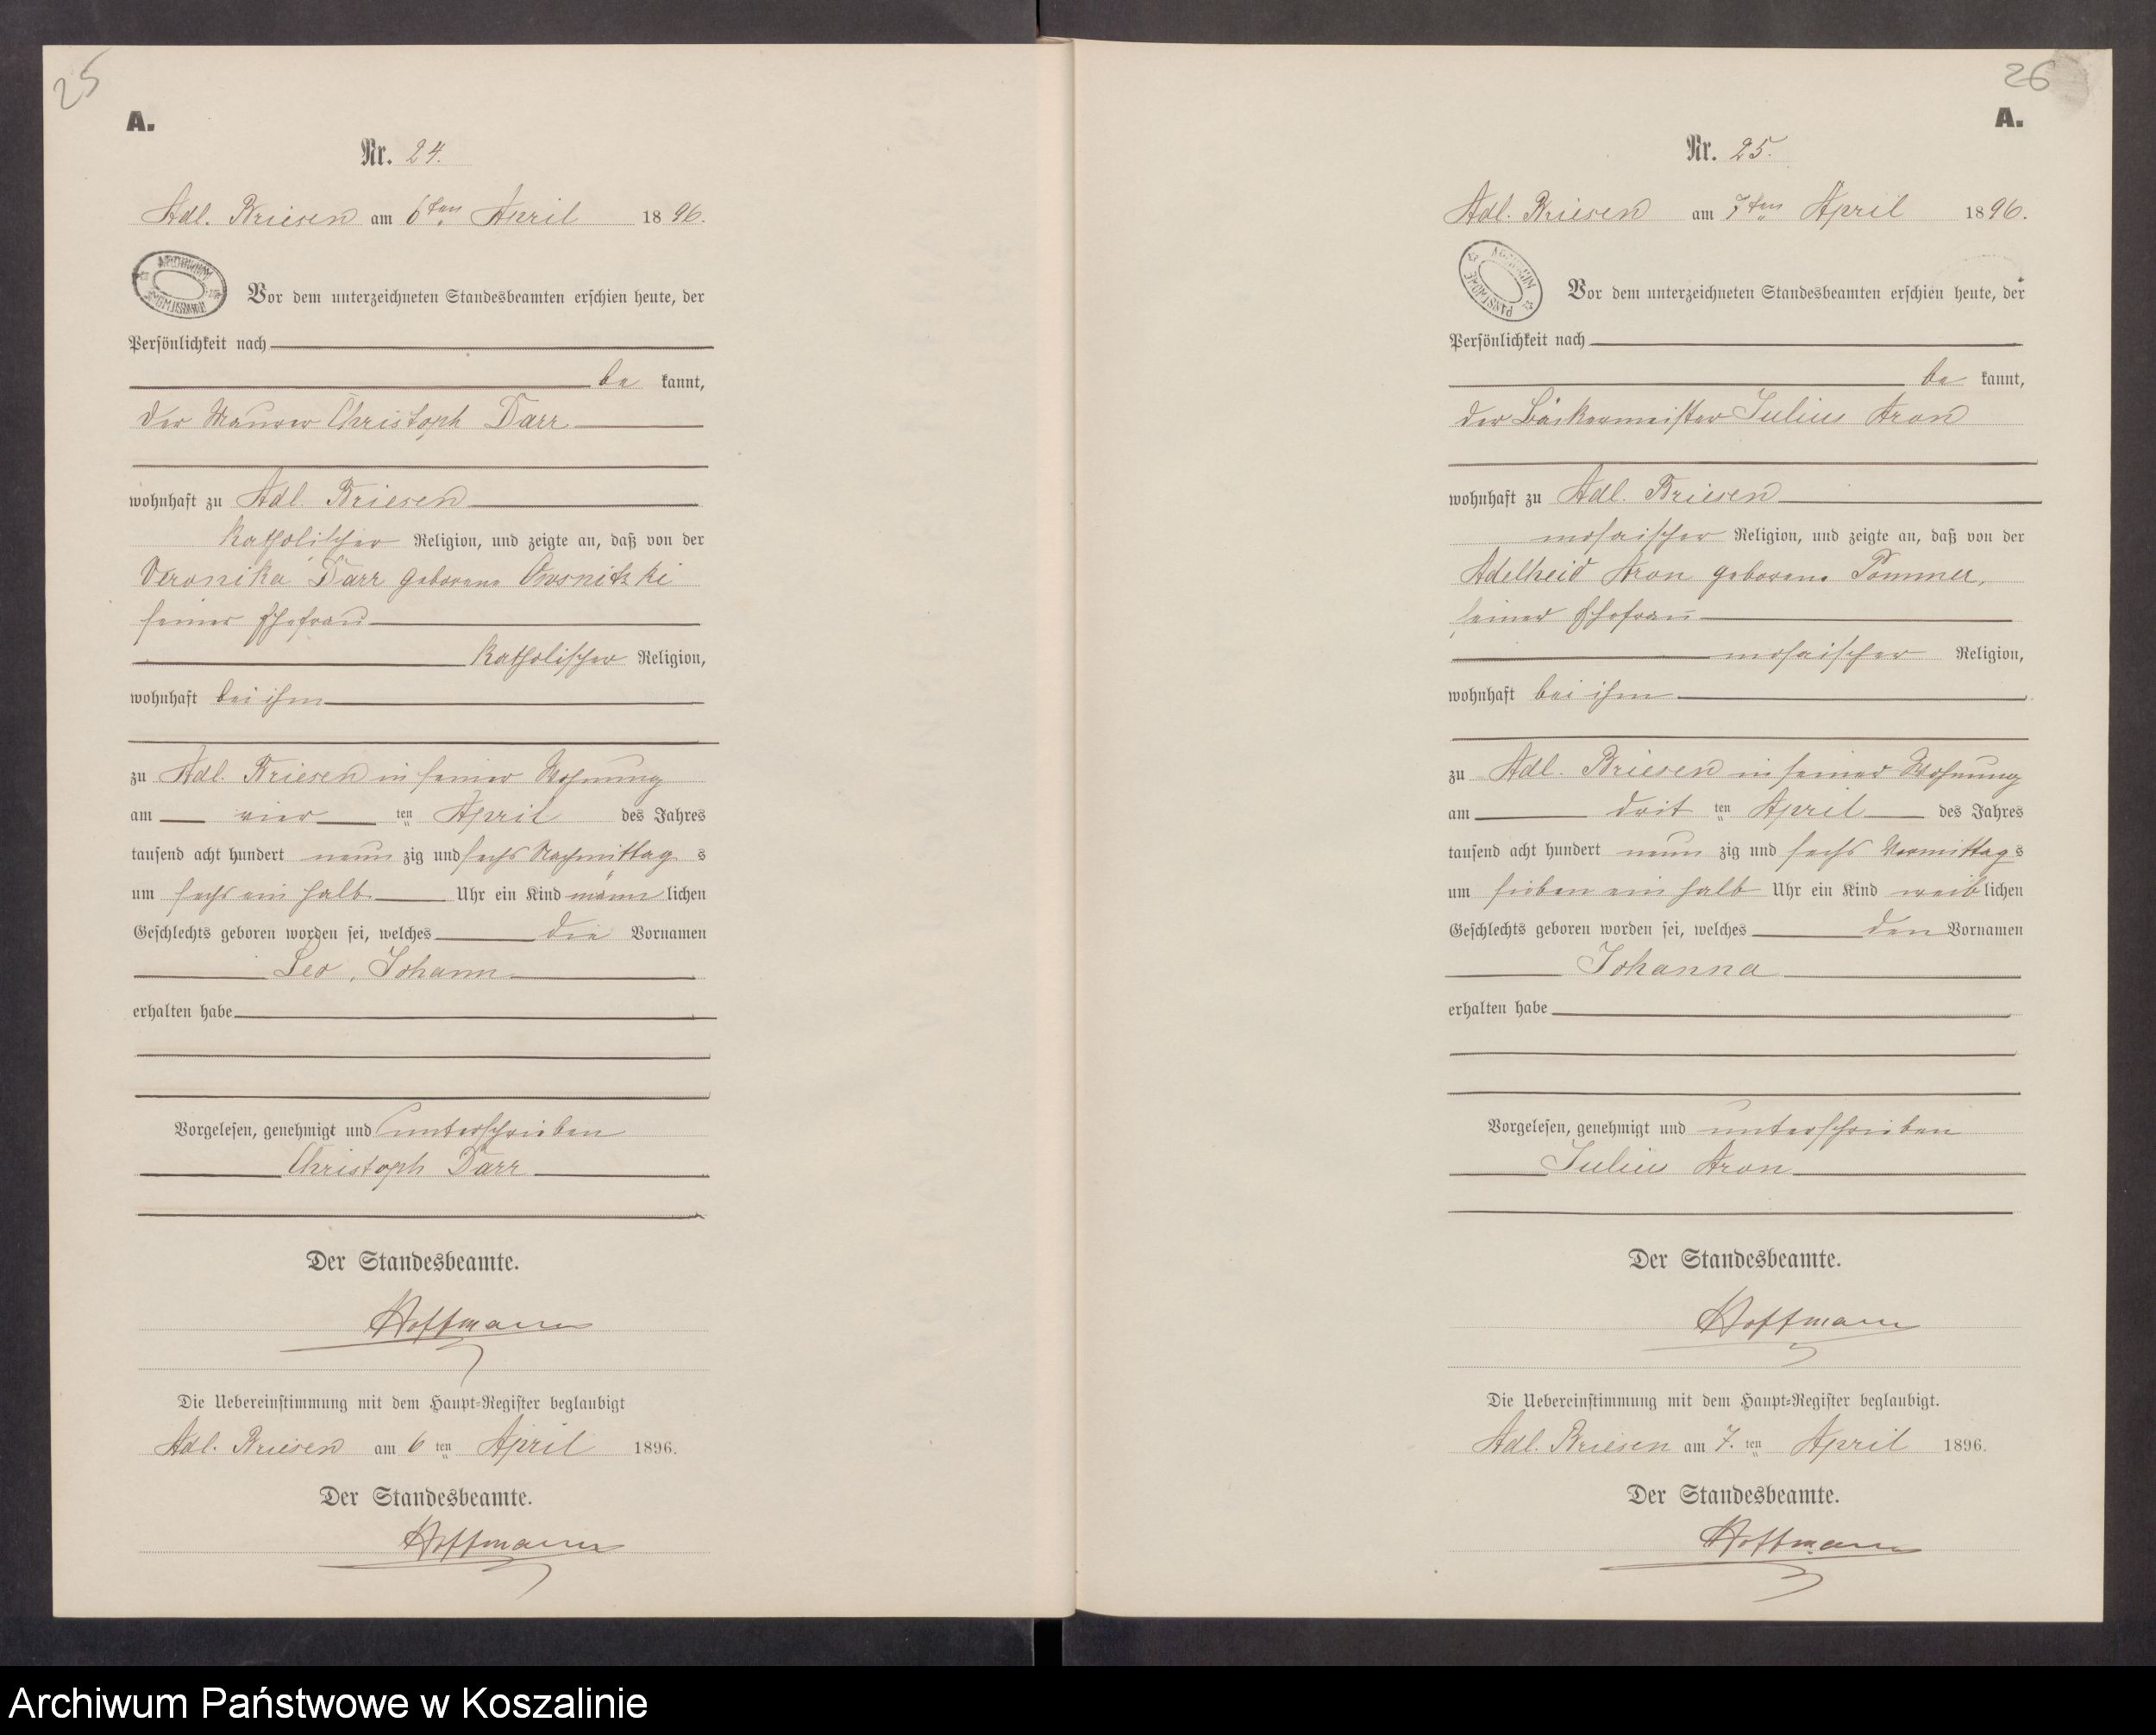 25
A.
Nr. 24.
Adl. Briesen am 6ten April 1896.
ARCHIWUM
Vor dem unterzeichneten Standesbeamten erschien heute, der
Persönlichkeit nach
be kannt,
der Maurer Christoph Darr
wohnhaft zu Adl. Briesen
katholischer Religion, und zeigte an, daß von der
Veronika Darr geborene
seiner Ehefrau
katholischer Religion,
wohnhaft bei ihm
zu Adl. Briesen in seiner Wohnung
am vier ten April des Jahres
tausend acht hundert neun zig und sechs Nachmittag s
um sechs ein halb Uhr ein Kind männ lichen
Geschlechts geboren worden sei, welches die Vornamen
Leo, Johann
erhalten habe
Vorgelesen, genehmigt und unterschrieben
Christoph Darr
Der Standesbeamte.
Hoffmann
Die Uebereinstimmung mit dem Haupt-Register beglaubigt
Adl. Briesen am 6 ten April 1896.
Der Standesbeamte.
Hoffmann
26
A.
Nr. 25.
Adl. Briesen am 7ten April 1896.
ARCHIWUM PAŃSTWOWE
Vor dem unterzeichneten Standesbeamten erschien heute, der
Persönlichkeit nach
be kannt,
der Bäckermeister Julius Aron
wohnhaft zu Adl. Briesen
mosaischer Religion, und zeigte an, daß von der
Adelheid Aron geborene Pommer,
seiner Ehefrau
mosaischer Religion,
wohnhaft bei ihm
zu Adl. Briesen in seiner Wohnung
am drit ten April des Jahres
tausend acht hundert neun zig und sechs Vormittag s
um sieben ein halb Uhr ein Kind weib lichen
Geschlechts geboren worden sei, welches den Vornamen
Johanna
erhalten habe
Vorgelesen, genehmigt und unterschrieben
Julius Aron
Der Standesbeamte.
Hoffmann
Die Uebereinstimmung mit dem Haupt-Register beglaubigt.
Adl. Briesen am 7. ten April 1896.
Der Standesbeamte.
Hoffmann
Archiwum Państwowe w Koszalinie